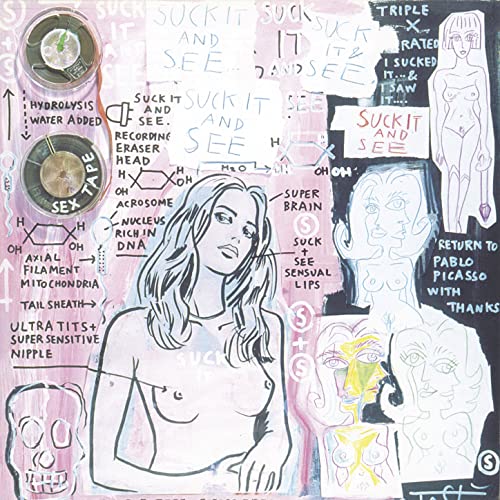 SUCK IT
AND
SEE
SUCK
IT &
SEE
AND
SEE
SUCK IT
AND
SEE
TRIPLE
X
RATED
I SUCKED
IT...&
I SAW
IT....
SUCK IT
AND
SEE
S
+
S
HYDROLYSIS
WATER ADDED
SEX TAPE
SUCK IT
AND
SEE.
RECORDING
ERASER
HEAD
H2O
OH
OH
HO
OH
ACROSOME
NUCLEUS
RICH IN
DNA
H
OH
H
OH
AXIAL
FILAMENT
MITOCHONDRIA
TAIL SHEATH
ULTRA TITS +
SUPER SENSITIVE
NIPPLE
SUPER
BRAIN
S
SUCK
+
SEE
SENSUAL
LIPS
S
+
S
SUCK
IT
RETURN TO
PABLO
PICASSO
WITH
THANKS
S